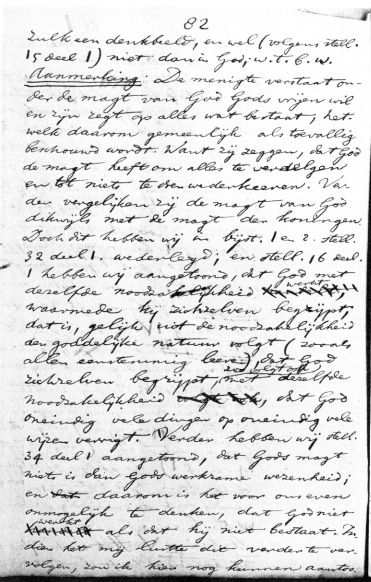 82
zulk een denkbeeld, en wel (volgens stell.
15 deel 1) niet dan in God; w. t. b. w.
Aanmerking: De menigte verstaat on-
der de magt van God Gods vrijen wil
en zijn regt op alles wat bestaat, het-
welk daarom gemeenlijk als toevallig
beschouwd wordt. Want zij zeggen, dat God
de magt heeft om alles te verdelgen
en tot niets te doen wederkeeren. Ver-
der vergelijken zij de magt van God
dikwijls met de magt der koningen.
Doch dit hebben wij in bijst. 1 en 2. stell.
32 deel 1. wederlegd; en stell. 16 deel
1 hebben wij aangetoond, dat God met
dezelfde noodzakelijkheid werkt,
waarmede hij zichzelven begrijpt,
dat is, gelijk uit de noodzakelijkheid
der goddelijke natuur volgt (zooals
allen eenstemmig leeren), dat God
zichzelven begrijpt, met dezelfde
noodzakelijkheid zoo volgt ook, dat God
oneindig vele dingen op oneindig vele
wijzen verrigt. Verder hebben wij stell.
34 deel 1 aangetoond, dat Gods magt
niets is dan Gods werkzame wezenheid;
en daarom is het voor ons even
onmogelijk te denken, dat God niet
werkt als dat hij niet bestaat. In-
dien het mij lustte dit verder te ver-
volgen, zou ik hier nog kunnen aantoo-